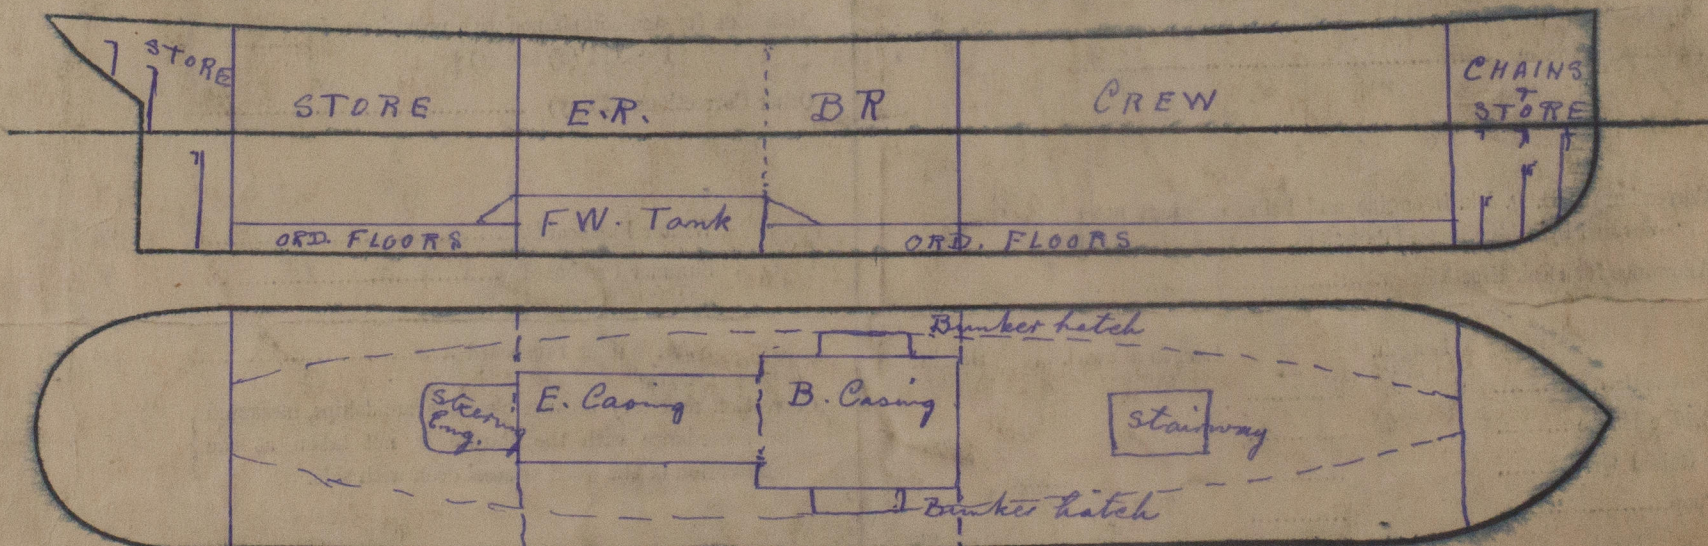 STORE
STORE
E.R.
BR
CREW
CHAINS
+
STORE
FW. Tank
ORD. FLOORS
ORD. FLOORS
Bunker hatch
Steering
Eng.
E. Casing
B. Casing
Stairway
Bunker hatch